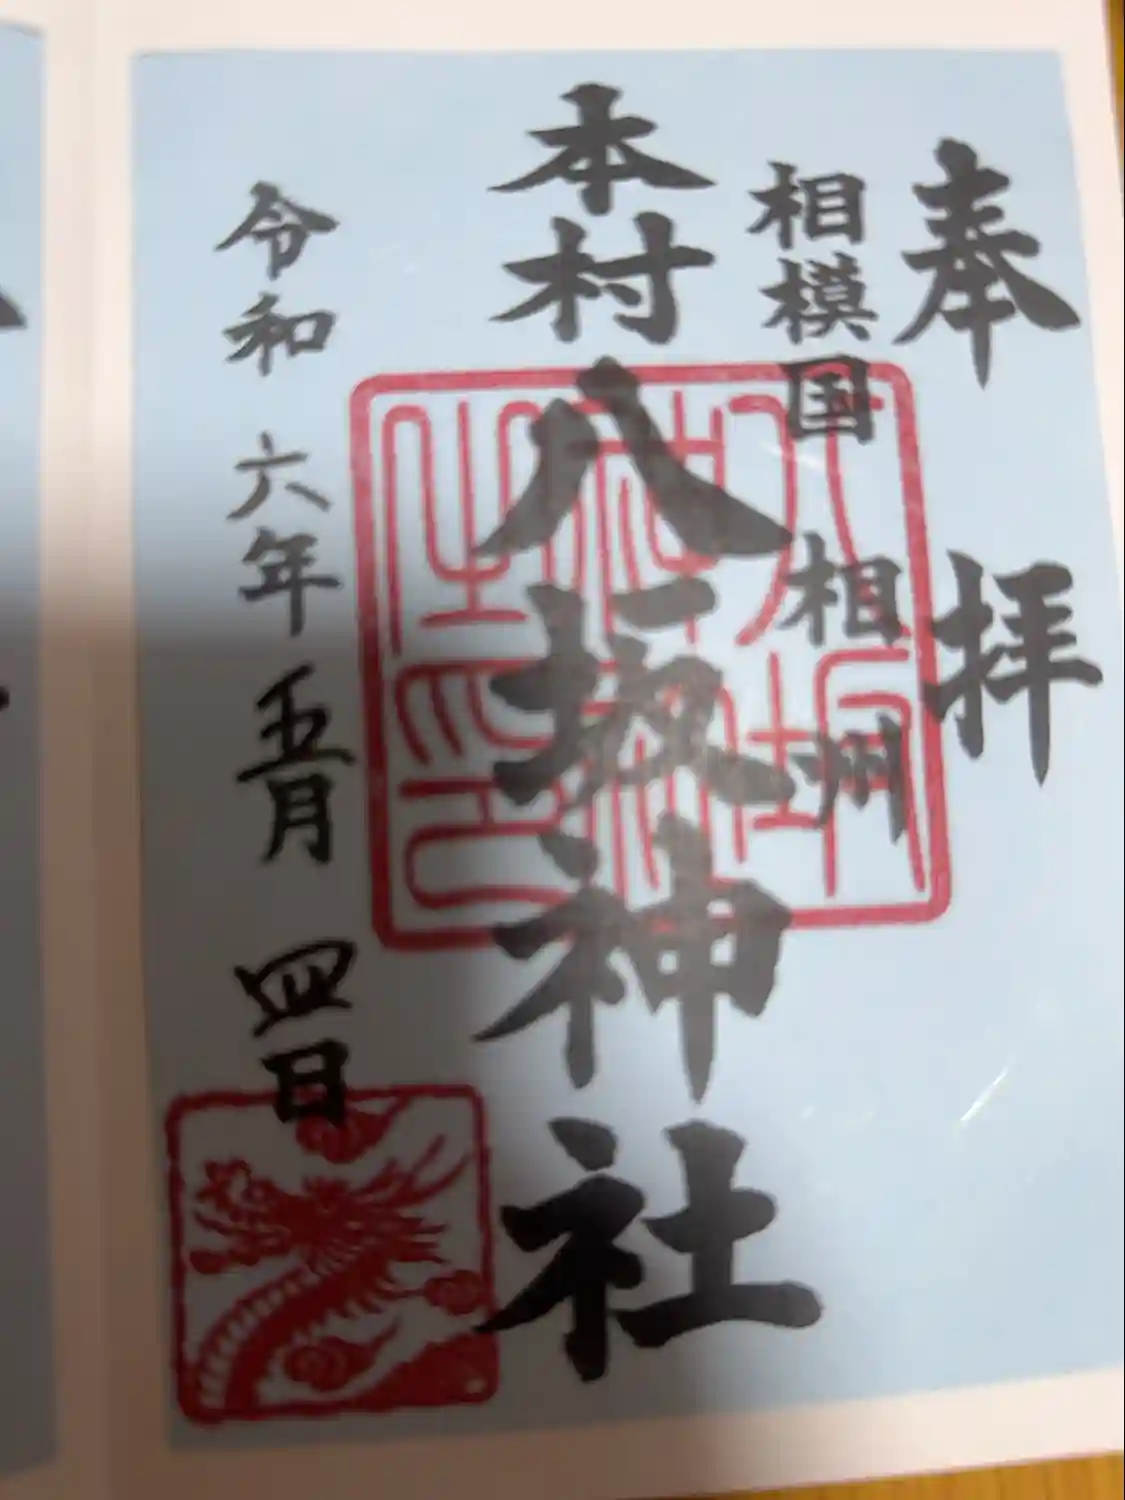 奉拝
相模国 相州
本村八坂神社
令和 六年 五月 四日